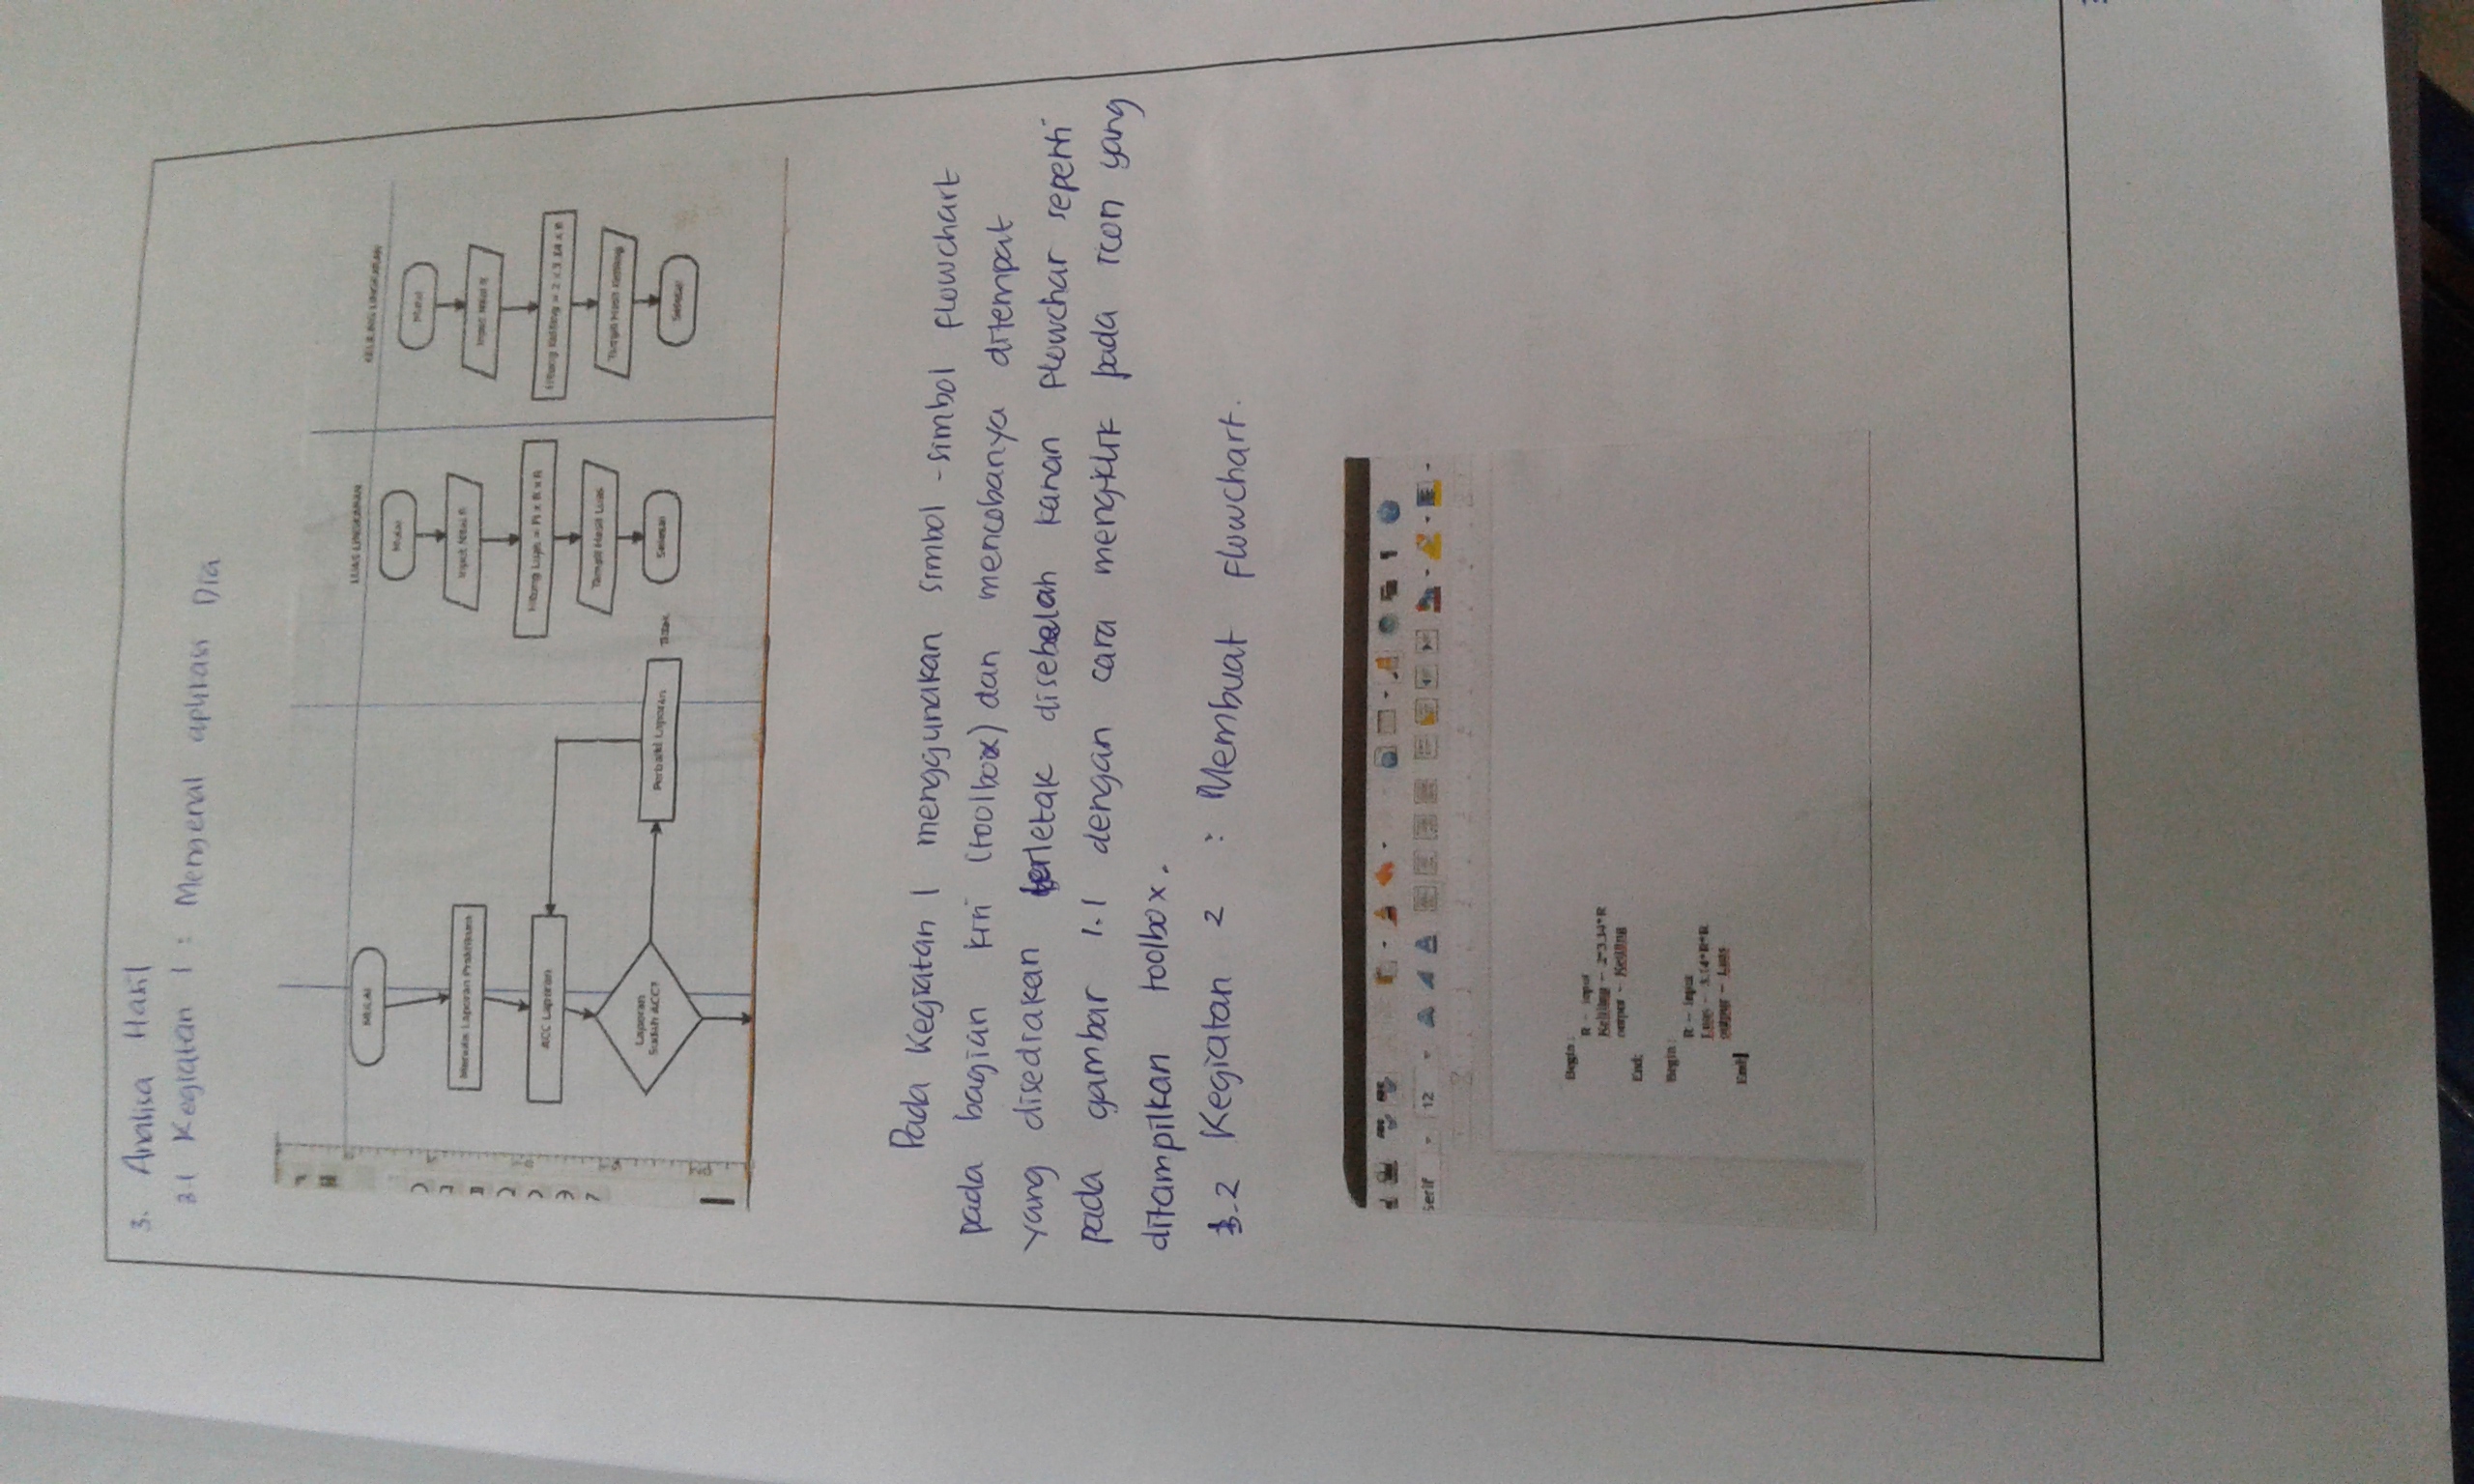 3. Analisa Hasil
3.1 Kegiatan 1 : Mengenal aplikasi Dia
MULAI
Menulis Laporan Praktikum
ACC Laporan
Laporan
Sudah ACC?
Perbaiki Laporan
Tidak
LUAS LINGKARAN
Mulai
Input Nilai R
Hitung Luas = Pi x R x R
Tampil Hasil Luas
Selesai
KELILING LINGKARAN
Mulai
Input Nilai R
Hitung Keliling = 2 x 3.14 x R
Tampil Hasil Keliling
Selesai
Pada Kegiatan 1 menggunakan simbol-simbol flowchart
pada bagian kiri (toolbox) dan mencobanya ditempat
yang disediakan terletak disebelah kanan flowchar seperti
pada gambar 1.1 dengan cara mengklik pada icon yang
ditampilkan toolbox.
3.2 Kegiatan 2 : Membuat flowchart.
Serif 12
Begin :
R = input
Keliling = 2*3.14*R
output = Keliling
End;
Begin :
R = input
Luas = 3.14*R*R
output = Luas
End;